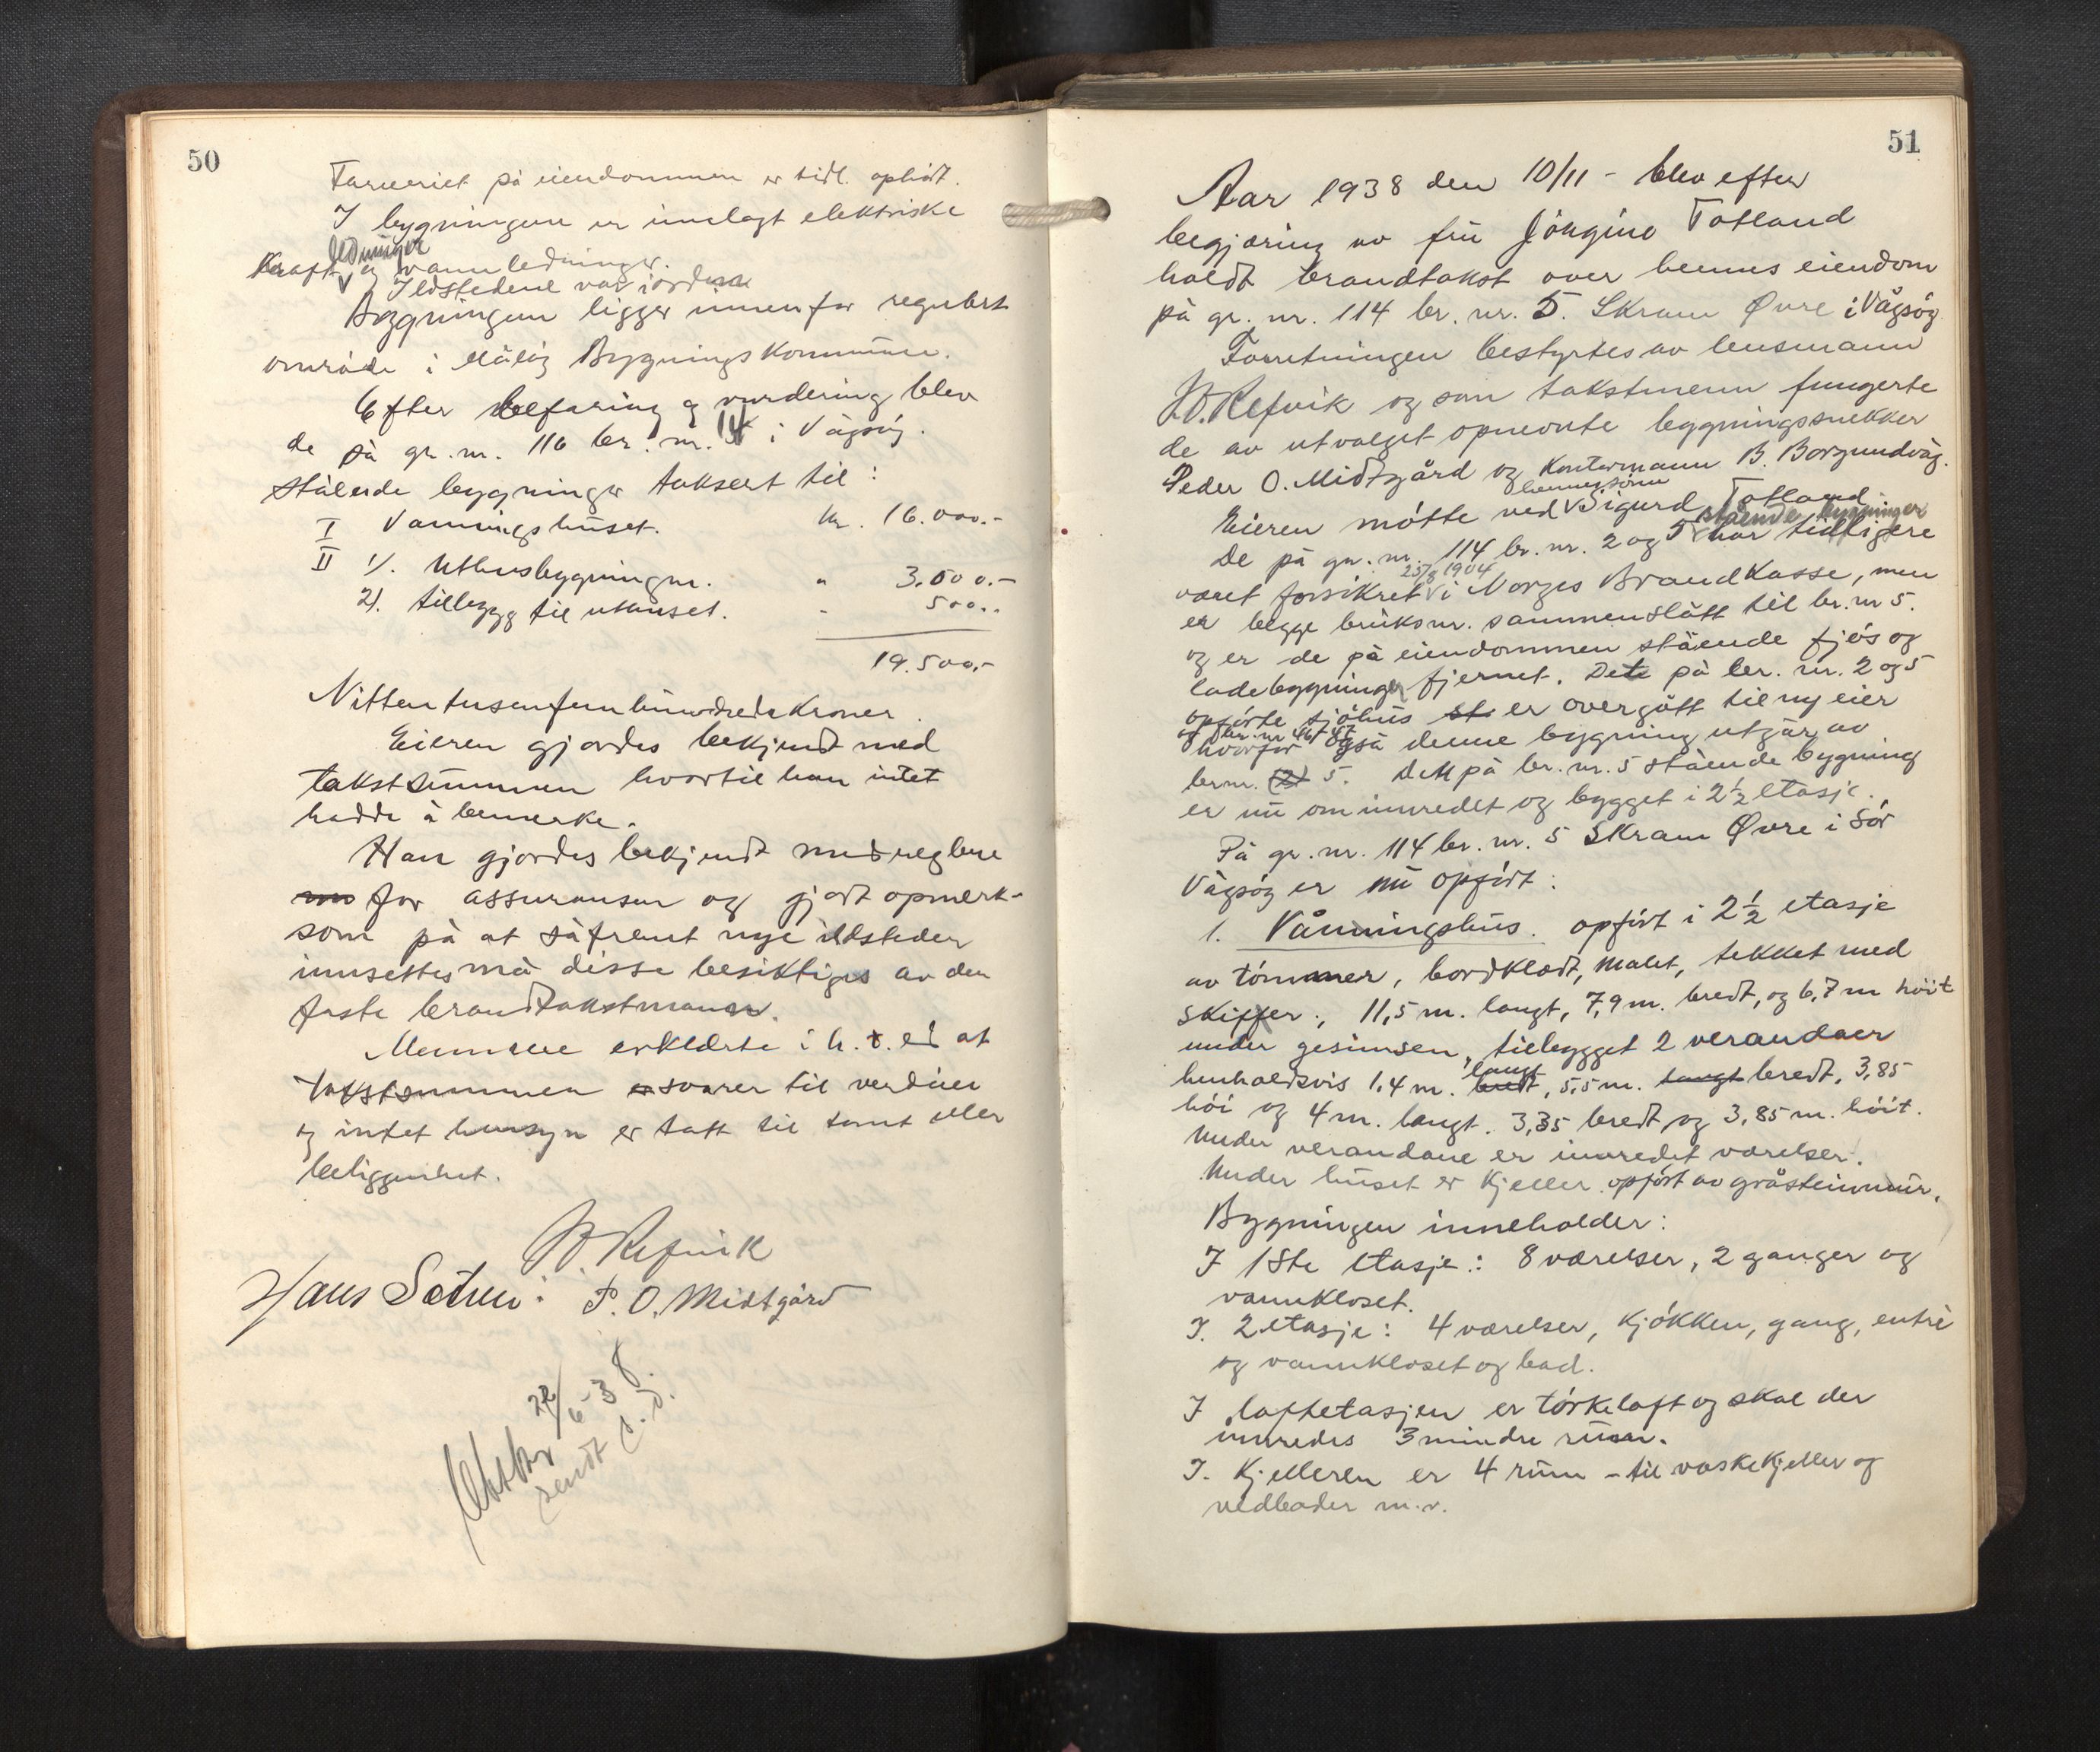 50
Farveriet på eiendommen er tidl. ophört.
I bygningene er innlagt elektriske
ledninger
Kraft og vannledninger.
Ildstedene var i orden
Bygningene ligger innenfor regulert
område i Måløy Bygningskommune.
Efter befaring og vurdering blev
de på gr. nr. 110 br. nr. i Vågsøy.
stående bygninger taksert til:
I Vanningshuset. kr. 16.000.-
II 1/. Uthusbygningen. " 3.000.-
2/. tillegg til uthuset. " 500..
19.500,-
Nittentusenfemhundrede kroner.
Eieren gjordes bekjendt med
takstsummen hvortil han intet
hadde å bemerke.
Han gjordes bekjendt med reglene
for assuransen og gjort opmerk-
som på at såfremt nye ildsteder
innsettes må disse besiktiges av den
faste brandtakstmann.
Mennene erklærte i h. t. ed at
takstsummen svarer til verdien
og intet hensyn er tatt til tomt eller
beliggenhet.
Refvik
Hans Sætren. P. O. Midtgård
22/6-38.
sendt
51
Aar 1938 den 10/11 - blev efter
begjæring av fru Jörgine Totland
holdt brandtakst over hennes eiendom
på gr. nr. 114 br. nr. 5. Skram Øvre i Vågsøy
Forretningen bestyrtes av lensmann
Refvik og som takstmenn fungerte
de av utvalget opnevnte bygningssnekker
Peder O. Midtgård og Kontormann B. Borgundvåg.
hennes sønn
Eieren mötte ved Sigurd Totland
stående bygninger
De på gr. nr. 114 br. nr. 2 og 5 har tidligere
25/8 1904
været forsikret i Norges Brandkasse, men
er begge bruksnr. sammenslått til br. nr 5.
og er de på eiendommen stående fjös og
ladebygninger fjernet. Dete på br. nr. 2 og 5
opförte sjöhus st. er overgått til ny eier
og får br. nr 46/47
hvorfor også denne bygning utgår av
br nr. (2) 5. Dett på br. nr. 5 stående bygning
er nu ominnredet og bygget i 2½ etasje.
På gr. nr. 114 br. nr. 5 Skram Øvre i Sör
Vågsöy er nu opfört:
1. Våningshus. opfört i 2½ etasje
av tömmer, bordklædt, malet, tekket med
skiffer., 11,5 m. langt, 7,9 m. bredt, og 6,7 m höit
under gesimsen, tilbygget 2 verandaer
langt
henholdsvis 1,4 m. bredt, 5,5 m. langt bredt, 3,85
höi og 4 m. langt. 3,35 bredt og 3,85 m. höit.
Under verandaene er innredet værelser.
Under huset er kjeller opfört av gråsteinmur.
Bygningen inneholder:
I 1ste etasje: 8 værelser, 2 ganger og
vannkloset.
I. 2 etasje: 4 værelser, kjökken, gang, entré
og vannkloset og bad.
I loftetasjen er törkeloft og skal der
innredes 3 mindre rum.
I. kjelleren er 4 rum - til vaskekjeller og
vedboder m.v.